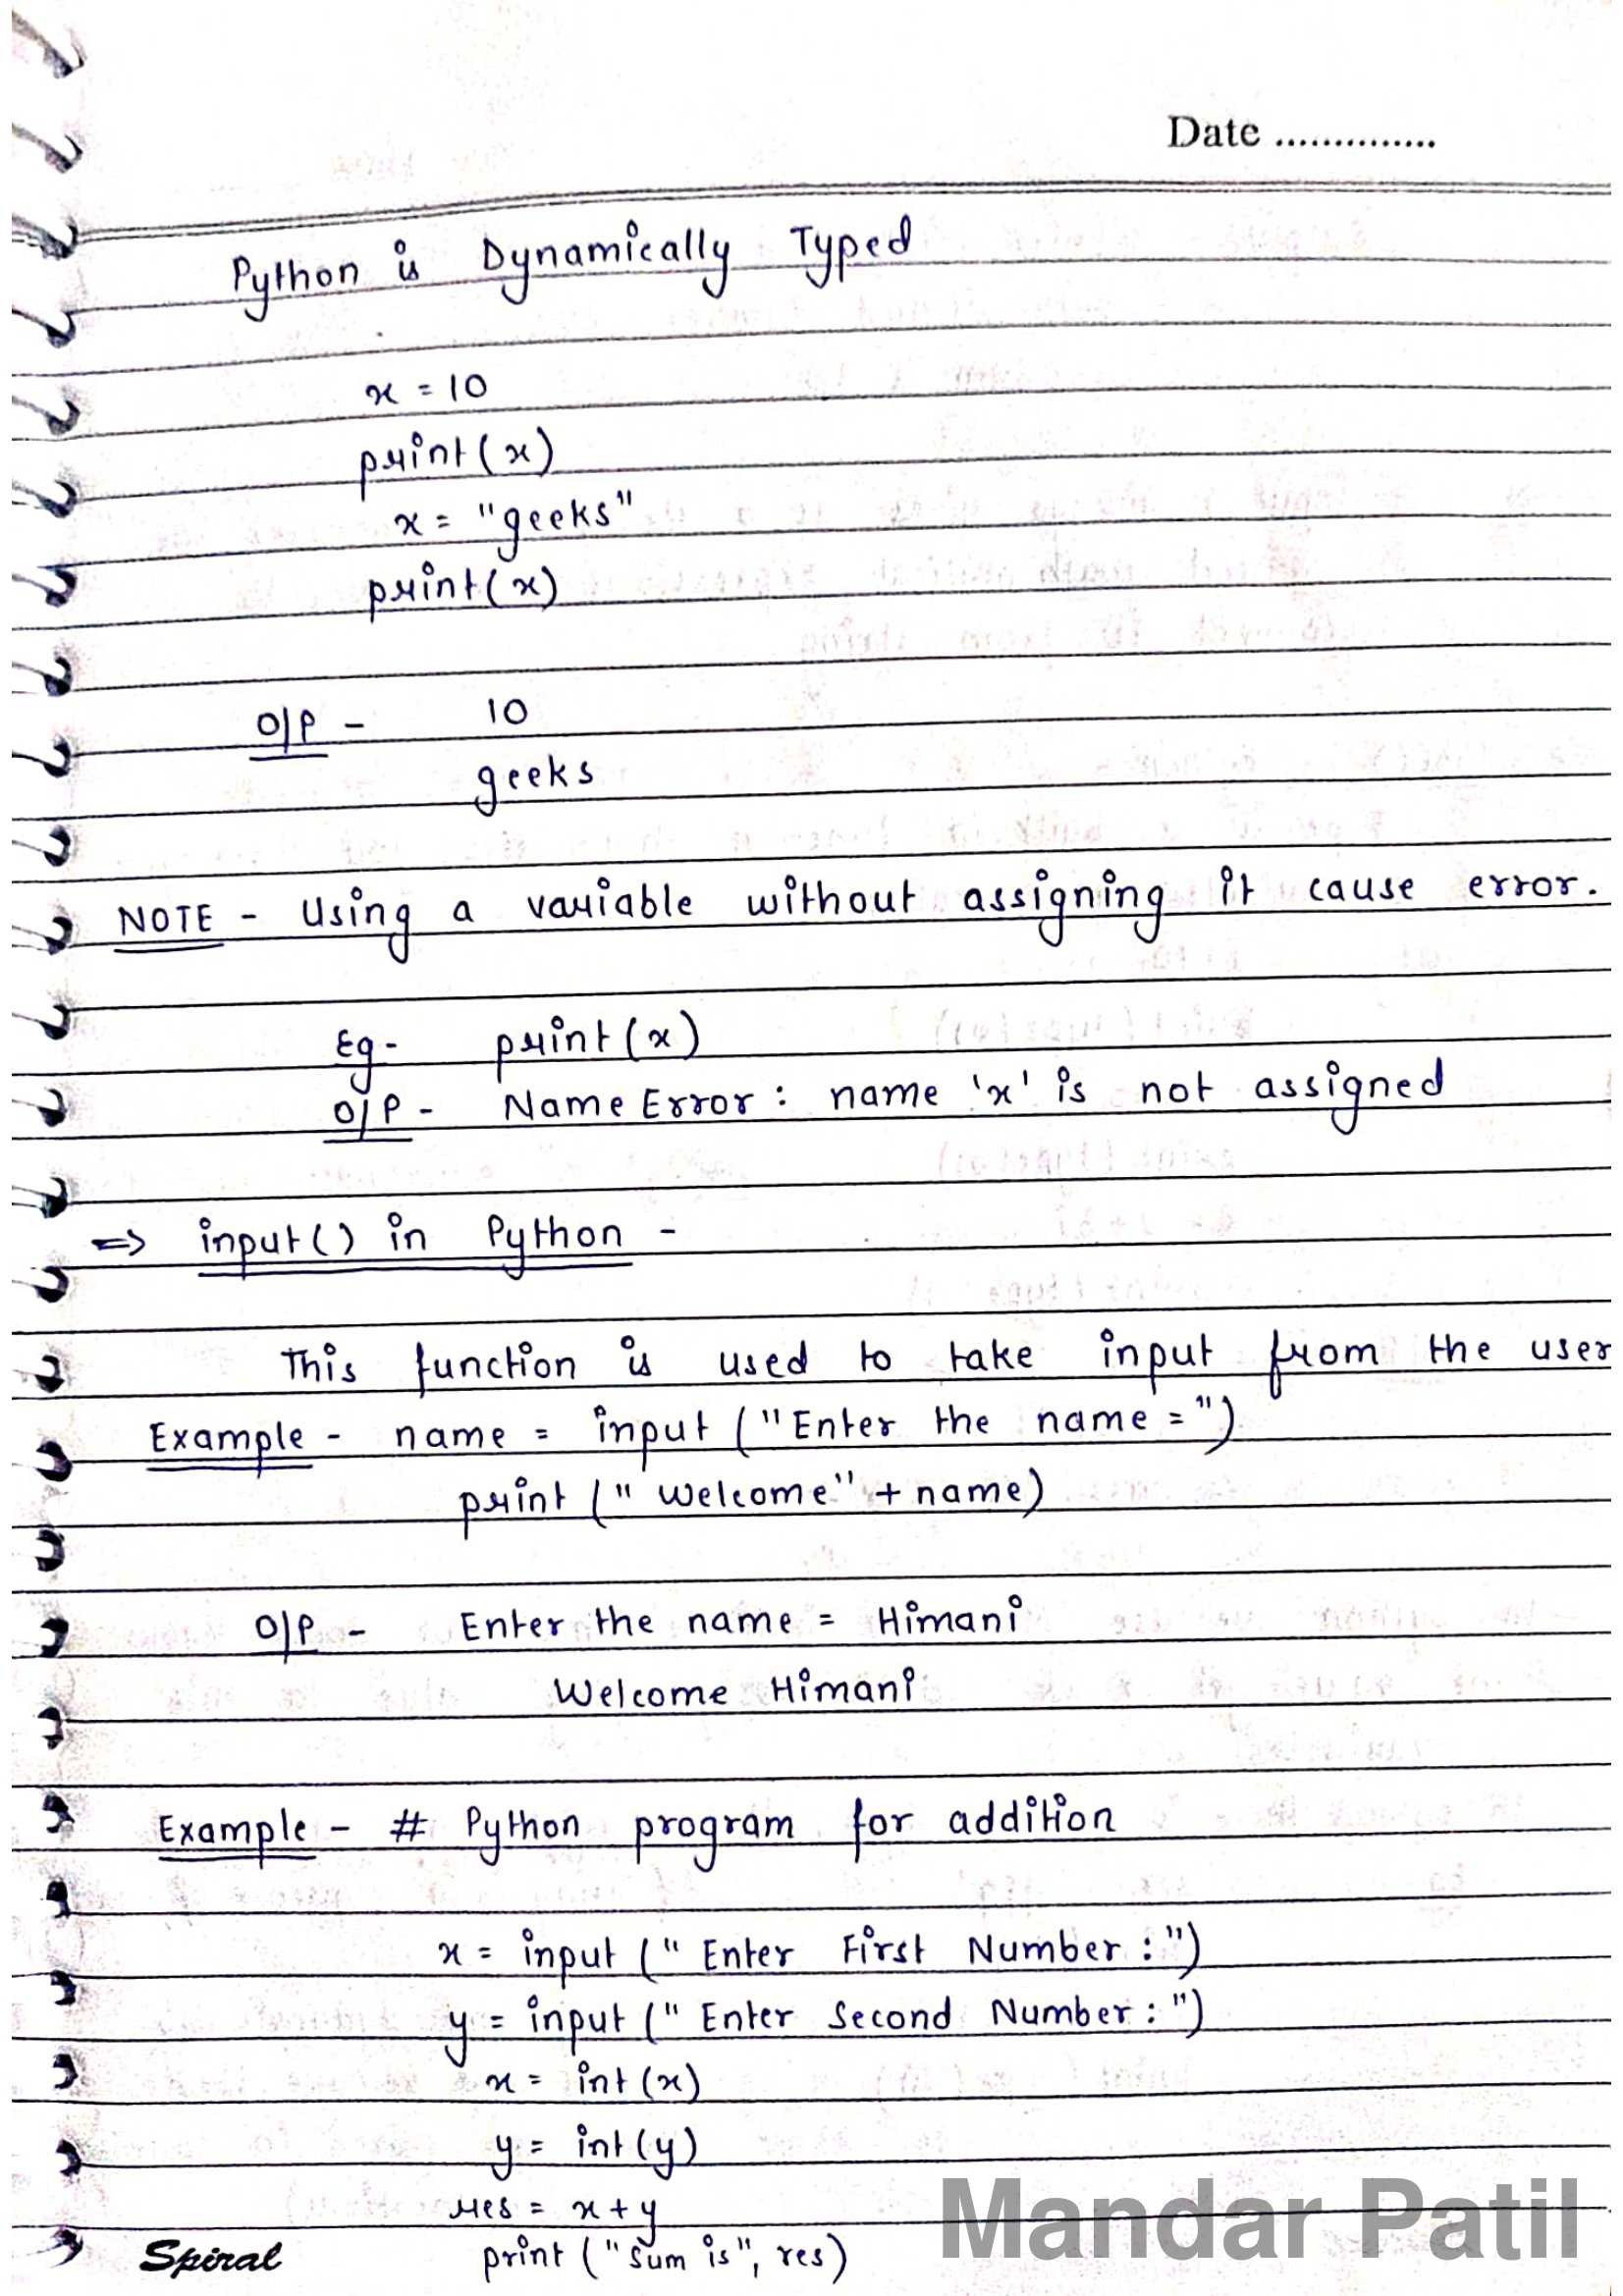 Date ..............
Python is Dynamically Typed
x = 10
print(x)
x = "geeks"
print(x)
O/P - 10
geeks
NOTE - Using a variable without assigning it cause error.
Eg- print(x)
O/P - Name Error : name 'x' is not assigned
=> input() in Python -
This function is used to take input from the user
Example - name = input ("Enter the name = ")
print (" Welcome" + name)
O/P - Enter the name = Himani
Welcome Himani
Example - # Python program for addition
x = input (" Enter First Number : ")
y = input (" Enter Second Number : ")
x = int (x)
y = int (y)
res = x + y
print ("Sum is", res)
Spiral
Mandar Patil